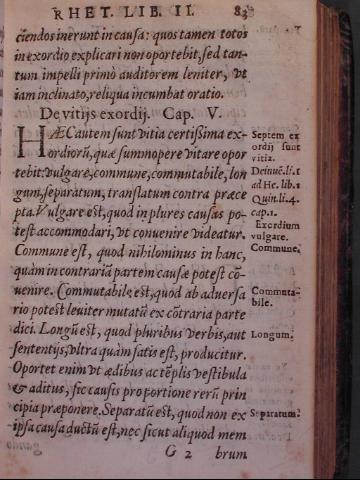 RHET. LIB. II. 83
ciendos inerunt in causa: quos tamen totos
in exordio explicari non oportebit, sed tan-
tum impelli primò auditorem leniter, vt
iam inclinato, reliqua incumbat oratio.
De vitijs exordij. Cap. V.
HÆC autem sunt vitia certissima ex-
ordiorũ, quæ summopere vitare opor
tebit: vulgare, commune, commutabile, lon
gum, separatum, translatum contra præce
pta. Vulgare est, quod in plures causas po-
test accommodari, vt conuenire videatur.
Commune est, quod nihilominus in hanc,
quàm in contrariã partem causæ potest cõ-
uenire. Commutabile est, quod ab aduersa
rio potest leuiter mutatũ ex cõtraria parte
dici. Longũ est, quod pluribus verbis, aut
sententijs, vltra quàm satis est, producitur.
Oportet enim vt ædibus ac tẽplis vestibula
& aditus, sic causis proportione rerũ prin
cipia præponere. Separatũ est, quod non ex
ipsa causa ductũ est, nec sicut aliquod mem
G 2 brum
Septem ex
ordij sunt
vitia.
De inuẽ. li. 1
ad He. lib. 1
Quin. li. 4.
cap. 1.
Exordium
vulgare.
Commune.
Commuta-
bile.
Longum.
Separatum.